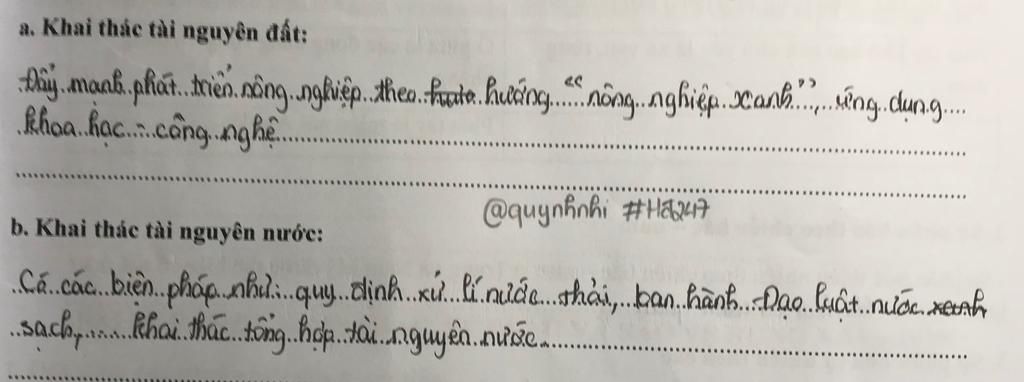 a. Khai thác tài nguyên đất:
Đẩy mạnh phát triển nông nghiệp theo hướng "nông nghiệp xanh", ứng dụng
khoa học - công nghệ
@quynhnhi #Hỏi247
b. Khai thác tài nguyên nước:
Có các biện pháp như: quy định xử lí nước thải, ban hành Đạo luật nước xanh
sạch, ... khai thác tổng hợp tài nguyên nước.